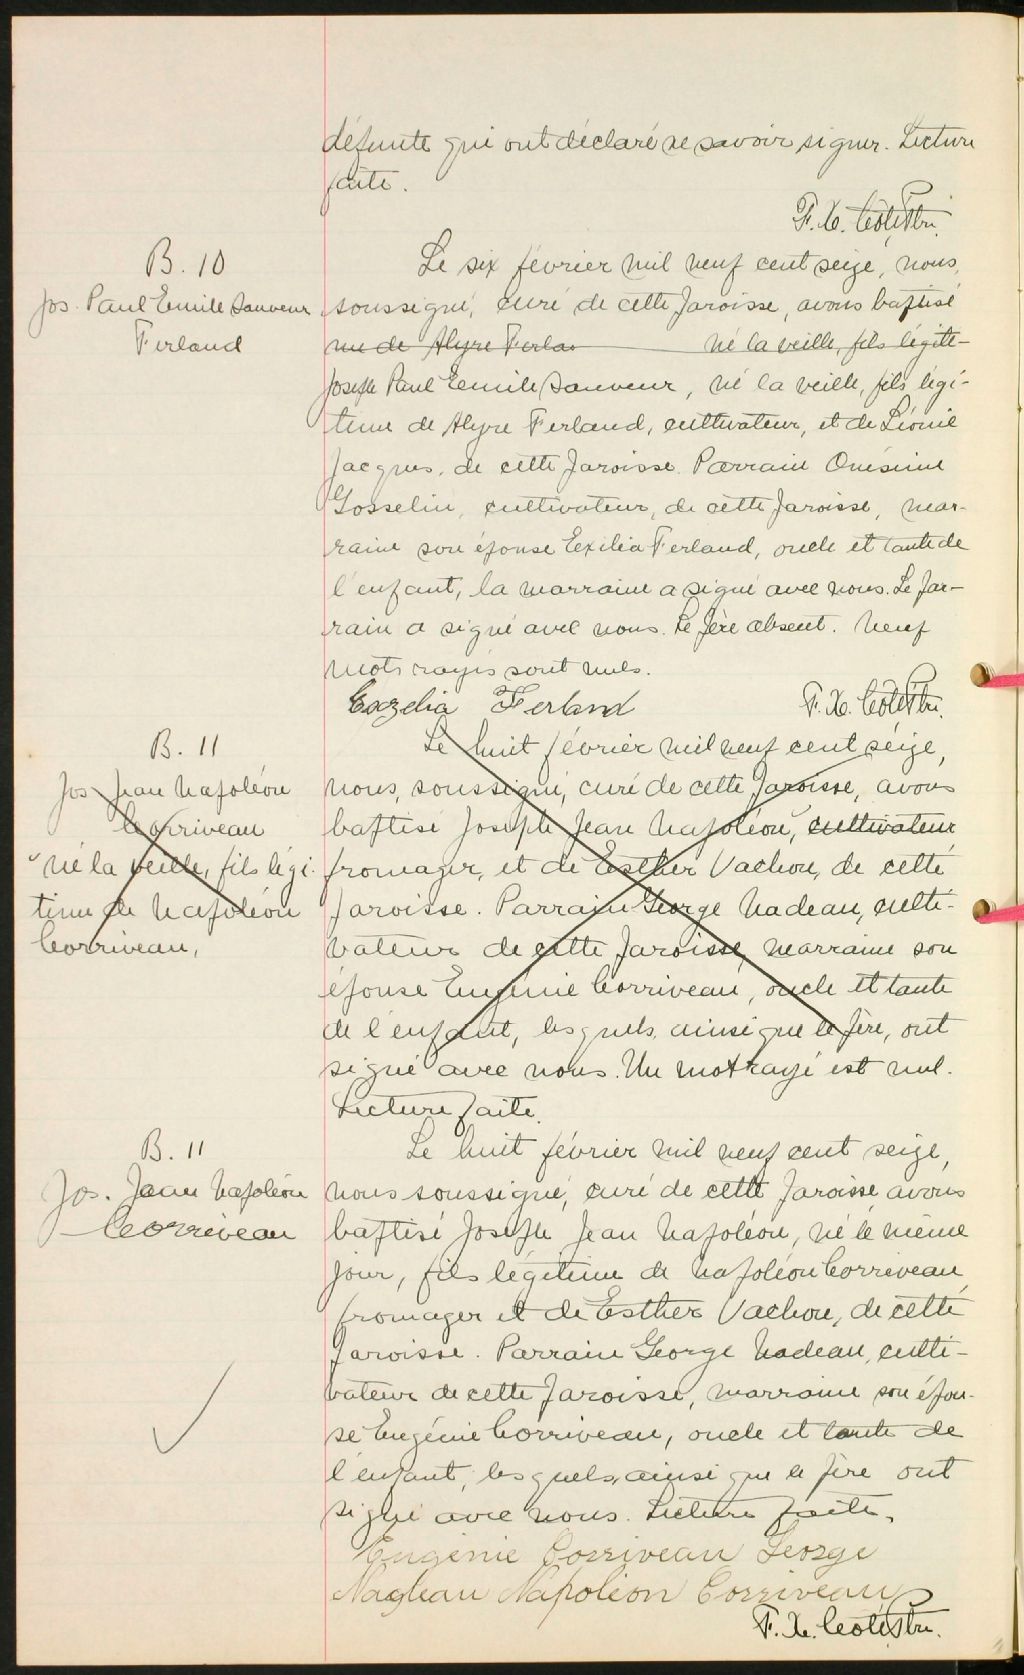 défunte qui ont déclaré ne savoir signer. Lecture
faite.
F. X. Côté, Ptre.
B. 10
Jos. Paul Emile Sauveur
Ferland
Le six février mil neuf cent seize, nous,
soussigné, curé de cette paroisse, avons baptisé
né la veille, fils légiti-
Joseph Paul Emile Sauveur, né la veille, fils légi-
time de Alyre Ferland, cultivateur, et de Léonie
Jacques, de cette paroisse. Parrain Onésime
Gosselin, cultivateur, de cette paroisse, mar-
raine son épouse Exilia Ferland, oncle et tante de
l'enfant, la marraine a signé avec nous. Le par-
rain a signé avec nous. Le père absent. Neuf
mots rayés sont nuls.
Exzelia Ferland
F. X. Côté Ptre.
B. 11
Jos. Jean Napoléon
Corriveau
"né la veille, fils légi-
time de Napoléon
Corriveau,
Le huit février mil neuf cent seize,
nous, soussigné, curé de cette paroisse, avons
baptisé Joseph Jean Napoléon," cultivateur,
fromager, et de Esther Vachon, de cette
paroisse. Parrain George Nadeau, culti-
vateur de cette paroisse, marraine son
épouse Eugénie Corriveau, oncle et tante
de l'enfant, lesquels, ainsi que le père, ont
signé avec nous. Un mot rayé est nul.
Lecture faite.
B. 11
Jos. Jean Napoléon
Corriveau
Le huit février mil neuf cent seize,
nous soussigné, curé de cette paroisse, avons
baptisé Joseph Jean Napoléon, né le même
jour, fils légitime de Napoléon Corriveau,
fromager et de Esther Vachon, de cette
paroisse. Parrain George Nadeau, culti-
vateur de cette paroisse, marraine son épou-
se Eugénie Corriveau, oncle et tante de
l'enfant, lesquels, ainsi que le père ont
signé avec nous. Lecture faite.
Eugénie Corriveau George
Nadeau Napoléon Corriveau
F. X. Côté, Ptre.